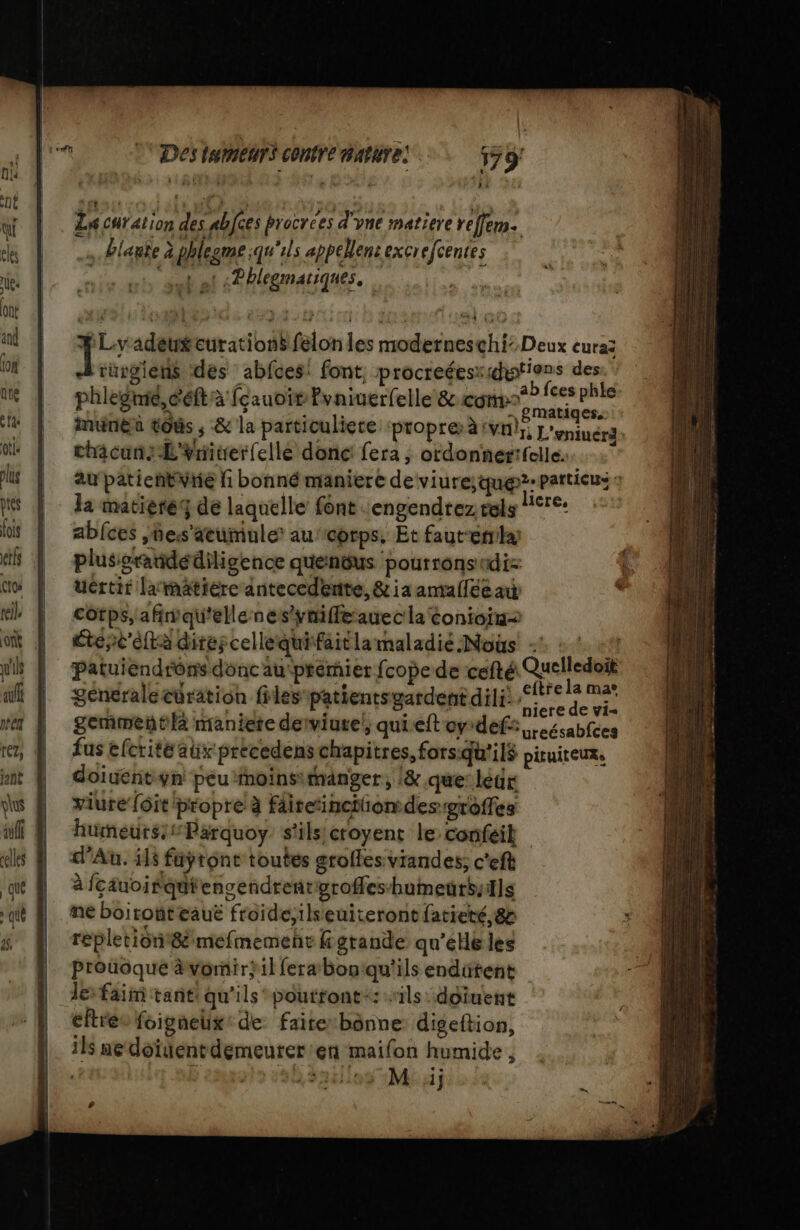 Des tumeurs contre nature. 179
La curation des abſces procrées d'vne matiere reſſem-
blante à phlegme, qu'ils appellent excreſcentes
Phlegmatiques.
IL y a deux curations ſelon les modernes chi-
rurgiens des abſces font, procreées
phlegme, c'eſt à ſçauoir l'vniuerſelle & com-
mune à tous, & la particuliere propre à vn
chacun. L'vniuerſelle donc ſera, ordonner
au patient vne ſi bonne maniere de viure, que
la matiere de laquelle ſont engendrez tels
abſces, ne s'acumule au corps. Et faut en la
plus grande diligence que nous pourrons di-
uertir la matiere antecedente, & ia amaſſée au
corps, afin qu'elle ne s'vniſſe auec la conioin-
cte, c'eſt à dire, celle qui fait la maladie. Nous
paruiendrons donc au premier ſcope de ceſte
generale curation ſi les patients gardent dili-
gemment la maniere de viure, qui eſt cy deſ-
ſus eſcrite aux precedens chapitres, fors qu'ils
doiuent vn peu moins manger, & que leur
viure ſoit propre à faire inciſion des groſſes
humeurs. Parquoy s'ils croyent le conſeil
d'Au. ils fuyront toutes groſſes viandes, c'eſt
à ſçauoir qui engendrent groſſes humeurs, Ils
ne boiront eauë froide, ils euiteront ſatieté, &
repletion & meſmement ſi grande qu'elle les
prouoque à vomir, il ſera bon qu'ils endurent
le faim tant qu'ils pourront : ils doiuent
eſtre ſoigneux de faire bonne digeſtion,
ils ne doiuent demeurer en maiſon humide,
M ij
Deux cura-
tions des
abſces phle-
gmatiqes.
1. L'vniuerſ-
ſelle.
2. particu-
liere.
Quelledoit
eſtre la ma-
niere de vi-
ure és abſces
pituiteux.